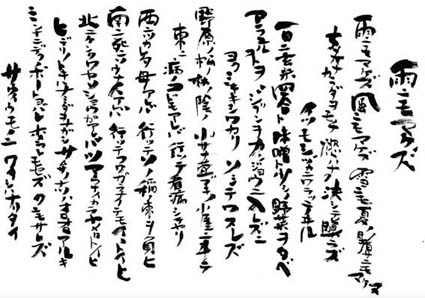 雨ニモマケズ
雨ニモマケズ 風ニモマケズ 雪ニモ夏ノ暑サニモマケヌ
丈夫ナカラダヲモチ 慾ハナク 決シテ瞋ラズ
イツモシヅカニワラッテヰル
一日ニ玄米四合ト味噌ト少シノ野菜ヲタベ
アラユルコトヲ ジブンヲカンジョウニ入レズニ
ヨクミキキシワカリ ソシテワスレズ
野原ノ松ノ林ノ陰ノ 小サナ萱ブキノ小屋ニヰテ
東ニ病ノコドモアレバ 行ッテ看病シテヤリ
西ニツカレタ母アレバ 行ッテソノ稲束ヲ負ヒ
南ニ死ニサウナ人アレバ 行ッテコワガラナクテモイイトイヒ
北ニケンクヮヤソショウガアレバ ツマラナイカラヤメロトイヒ
ヒデリノトキハナミダヲナガシ サムサノナツハオロオロアルキ
ミンナニデクノボートヨバレ ホメラレモセズ クニモサレズ
サウイフモノニ ワタシハナリタイ